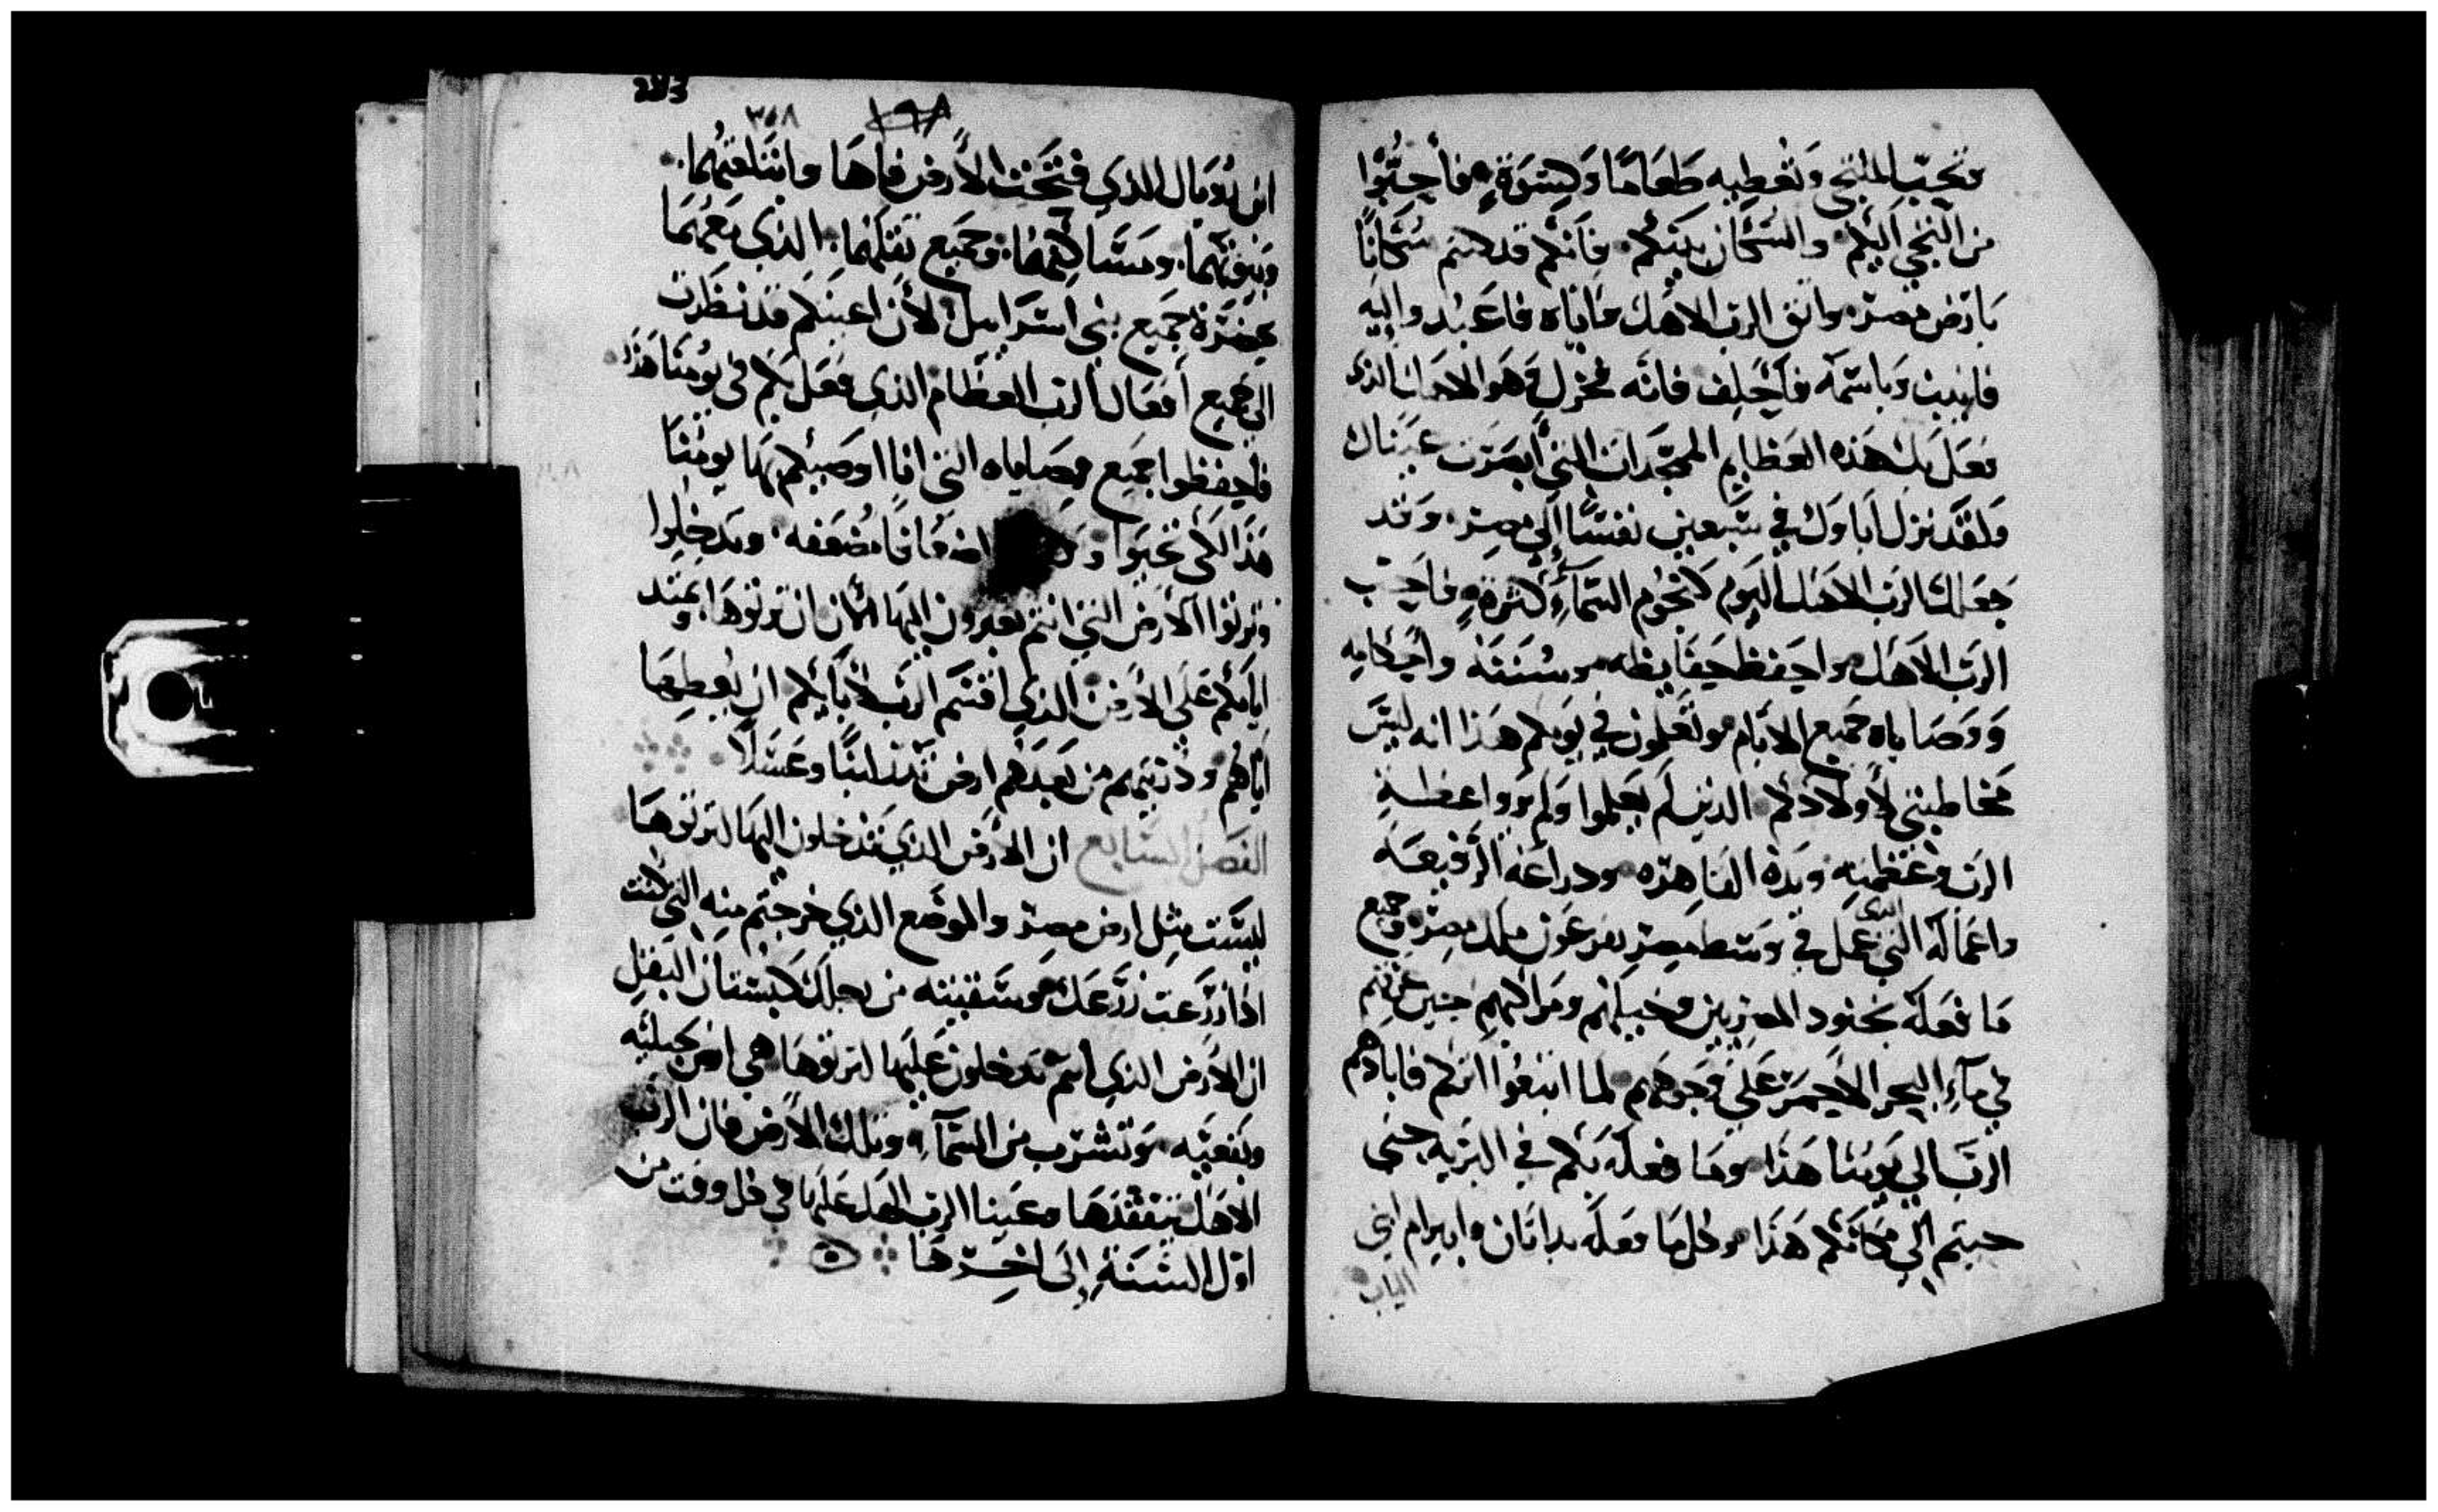 وتحب الملتجي وتعطيه طعامًا وكسوة فأحبوا
من التجي اليكم والسكان بينكم فانكم قد كنتم سكانًا
بارض مصر واتق الرب الاهك واياه فاعبد واليه
فانيب وباسمه فأحلف فانه فخرك وهو الاهك الذي
فعل بك هذه العظايم الممجدات التي أبصرت عيناك
ولقد نزل اباوك في سبعين نفسًا إلى مصر وقد
جعلك الرب الاهك اليوم كنجوم السمآء كثرة فاحب
الرب الاهك واحفظ حفايظه وسننه وأحكامه
ووصاياه جميع الأيام وتعلمون في يومكم هذا انه ليس
مخاطبتي لأولادكم الذين لم يعلموا ولم يروا عظة
الرب وعظمته ويده القاهره ودراعه الرفيعه
واعماله التي الذي عمل في وسط مصر بفرعون ملك مصر وجميع
ما فعله بجنود المصريين وخيلهم ومراكبهم حين غرقهم
في مآء البحر الأحمر على وجوههم لما اتبعوا اثركم فابادهم
الرب الي يومنا هذا وما فعله بكم في البريه حتي
جيتم إلي مكانكم هذا وكل ما فعله بداتان وابيرام ابني
الياب
٣٥٨
١٩٨
ابن روبال الذي فتحت الأرض فاها وابتلعتهما
وبيوتهما ومساكنهما وجميع ثقلهما الذي معهما
بحضرة جميع بني اسراييل لأن اعينكم قد نظرت
الي جميع أفعال الرب العظام الذي فعل بكم في يومنا هذا
فاحفظوا جميع وصاياه التي انا اوصيكم بها يومنا
هذا لكي تحيوا اضعافًا مضعفه وتدخلوا
وترثوا الأرض التي انتم تعبرون اليها الأن ان ترثوها وتمتد
ايامكم على الأرض الذي اقسم الرب لأبايكم ان يعطيها
اياهم وذريتهم من بعدهم ارض تدر لبنًا وعسلاً
الفصل السابع ان الأرض الذي تدخلون اليها لترثوها
ليست مثل ارض مصر والموضع الذي خرجتم منه التي كنت
اذا زرعت زرعك وسقيته من رجلك كبستان البقل
ان الأرض الذي انتم تدخلون عليها لترثوها هي ارض جبليه
وبقعيه وتشرب من السمآء وتلك الأرض فان الرب
الاهك يتفقدها وعينا الرب الهك عليها في كل وقت من
اول السنة إلى اخرها